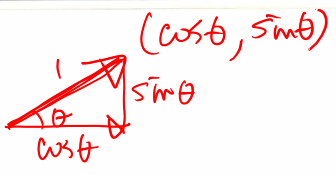 (cosθ, sinθ)
1
sinθ
θ
cosθ